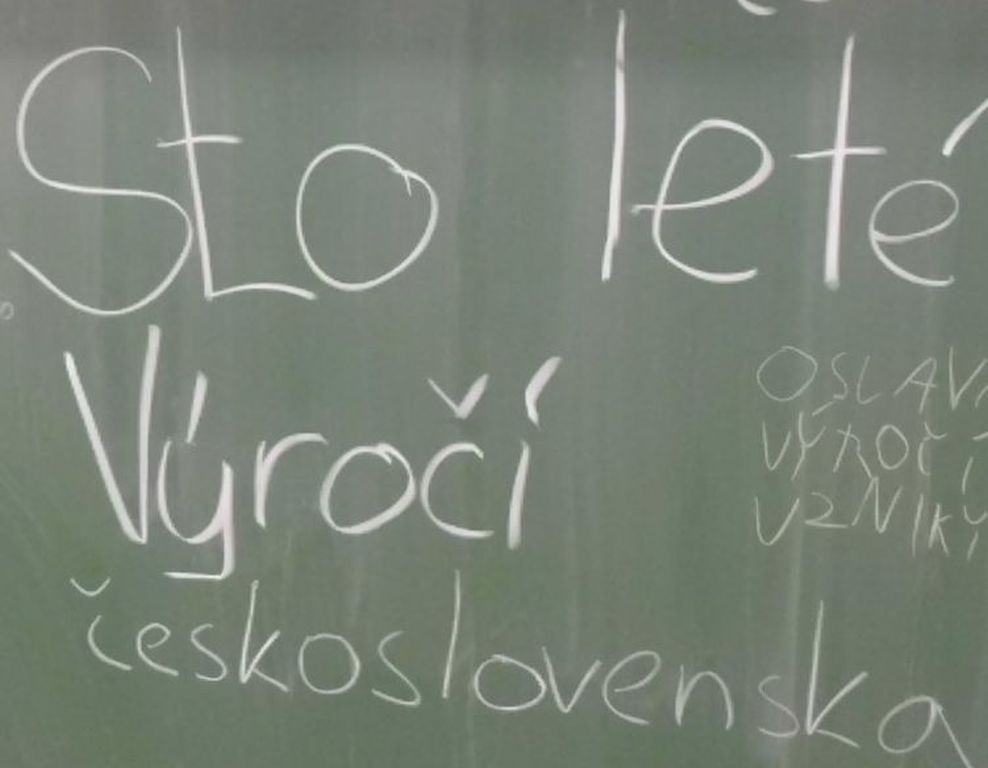 Sto leté
Výročí
československa
OSLAVA
VÝROČÍ
VZNIKU